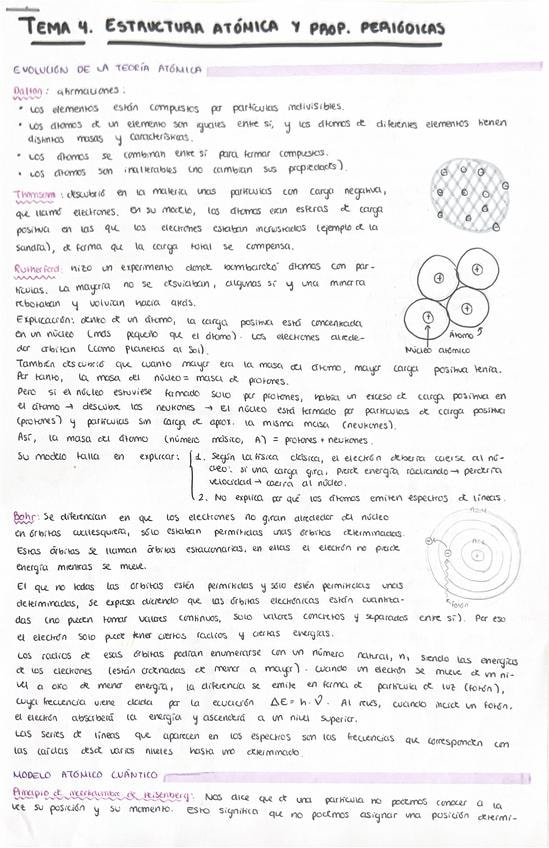 TEMA 4. ESTRUCTURA ATÓMICA Y PROP. PERIÓDICAS
EVOLUCIÓN DE LA TEORÍA ATÓMICA
Dalton: afirmaciones:
• Los elementos están compuestos por partículas indivisibles.
• Los átomos de un elemento son iguales entre sí, y los átomos de diferentes elementos tienen
distintas masas y características.
• Los átomos se combinan entre sí para formar compuestos.
• Los átomos son inalterables (no cambian sus propiedades).
Thomson: descubrió en la materia unas partículas con carga negativa,
que llamó electrones. En su modelo, los átomos eran esferas de carga
positiva en las que los electrones estaban incrustados (ejemplo de la
sandía), de forma que la carga total se compensa.
Rutherford: hizo un experimento donde bombardeó átomos con par-
tículas. La mayoría no se desviaban, algunas sí y una minoría
rebotaban y volvían hacia atrás.
Explicación: dentro de un átomo, la carga positiva está concentrada
en un núcleo (más pequeño que el átomo). Los electrones alrede-
dor orbitan (como planetas al Sol).
Átomo
Núcleo atómico
También descubrió que cuanto mayor era la masa del átomo, mayor carga positiva tenía.
Por tanto, la masa del núcleo = masa de protones.
Pero si el núcleo estuviese formado solo por protones, había un exceso de carga positiva en
el átomo → descubre los neutrones → El núcleo está formado por partículas de carga positiva
(protones) y partículas sin carga de aprox. la misma masa (neutrones).
Así, la masa del átomo (número másico, A) = protones + neutrones.
Su modelo falla en explicar: 1. Según la física clásica, el electrón debería caerse al nú-
cleo: si una carga gira, pierde energía radiando → perdería
velocidad → caería al núcleo.
2. No explica por qué los átomos emiten espectros de líneas.
Bohr: Se diferencian en que los electrones no giran alrededor del núcleo
en órbitas cualesquiera, sólo estaban permitidas unas órbitas determinadas.
Estas órbitas se llaman órbitas estacionarias, en ellas el electrón no pierde
energía mientras se mueve.
fotón
El que no todas las órbitas estén permitidas y sólo estén permitidas unas
determinadas, se expresa diciendo que las órbitas electrónicas están cuantiza-
das (no pueden tomar valores continuos, solo valores concretos y separados entre sí). Por eso
el electrón solo puede tener ciertos radios y ciertas energías.
Los radios de esas órbitas podían enumerarse con un número natural, n, siendo las energías
de los electrones (están ordenadas de menor a mayor). Cuando un electrón se mueve de un ni-
vel a otro de menor energía, la diferencia se emite en forma de partícula de luz (fotón),
cuya frecuencia viene dada por la ecuación ΔE = h · ν. Al revés, cuando incide un fotón,
el electrón absorberá la energía y ascenderá a un nivel superior.
Las series de líneas que aparecen en los espectros son las frecuencias que corresponden con
las caídas desde varios niveles hasta uno determinado.
MODELO ATÓMICO CUÁNTICO
Principio de incertidumbre de Heisenberg: Nos dice que de una partícula no podemos conocer a la
vez su posición y su momento. Esto significa que no podemos asignar una posición determi-